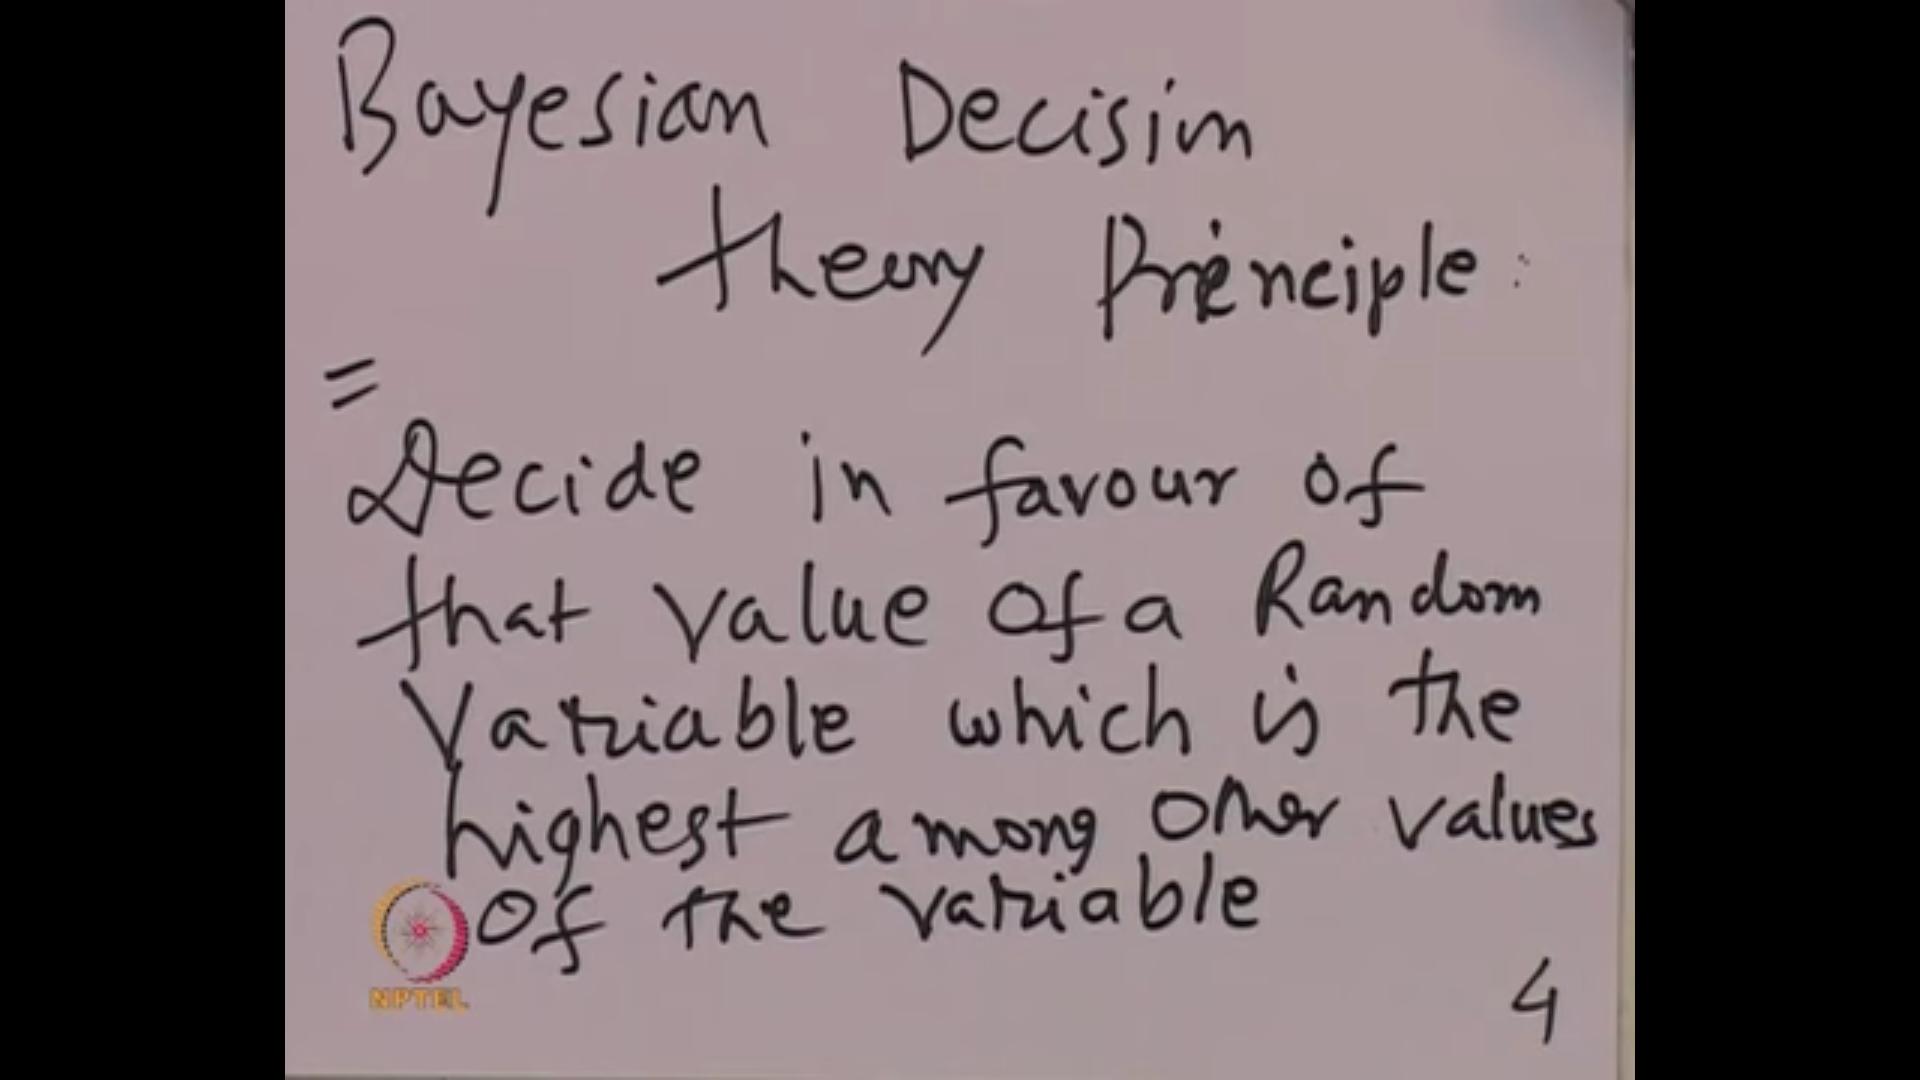 Bayesian Decision
theory Principle:
=
Decide in favour of
that value of a Random
Variable which is the
highest among other values
of the variable
NPTEL
4